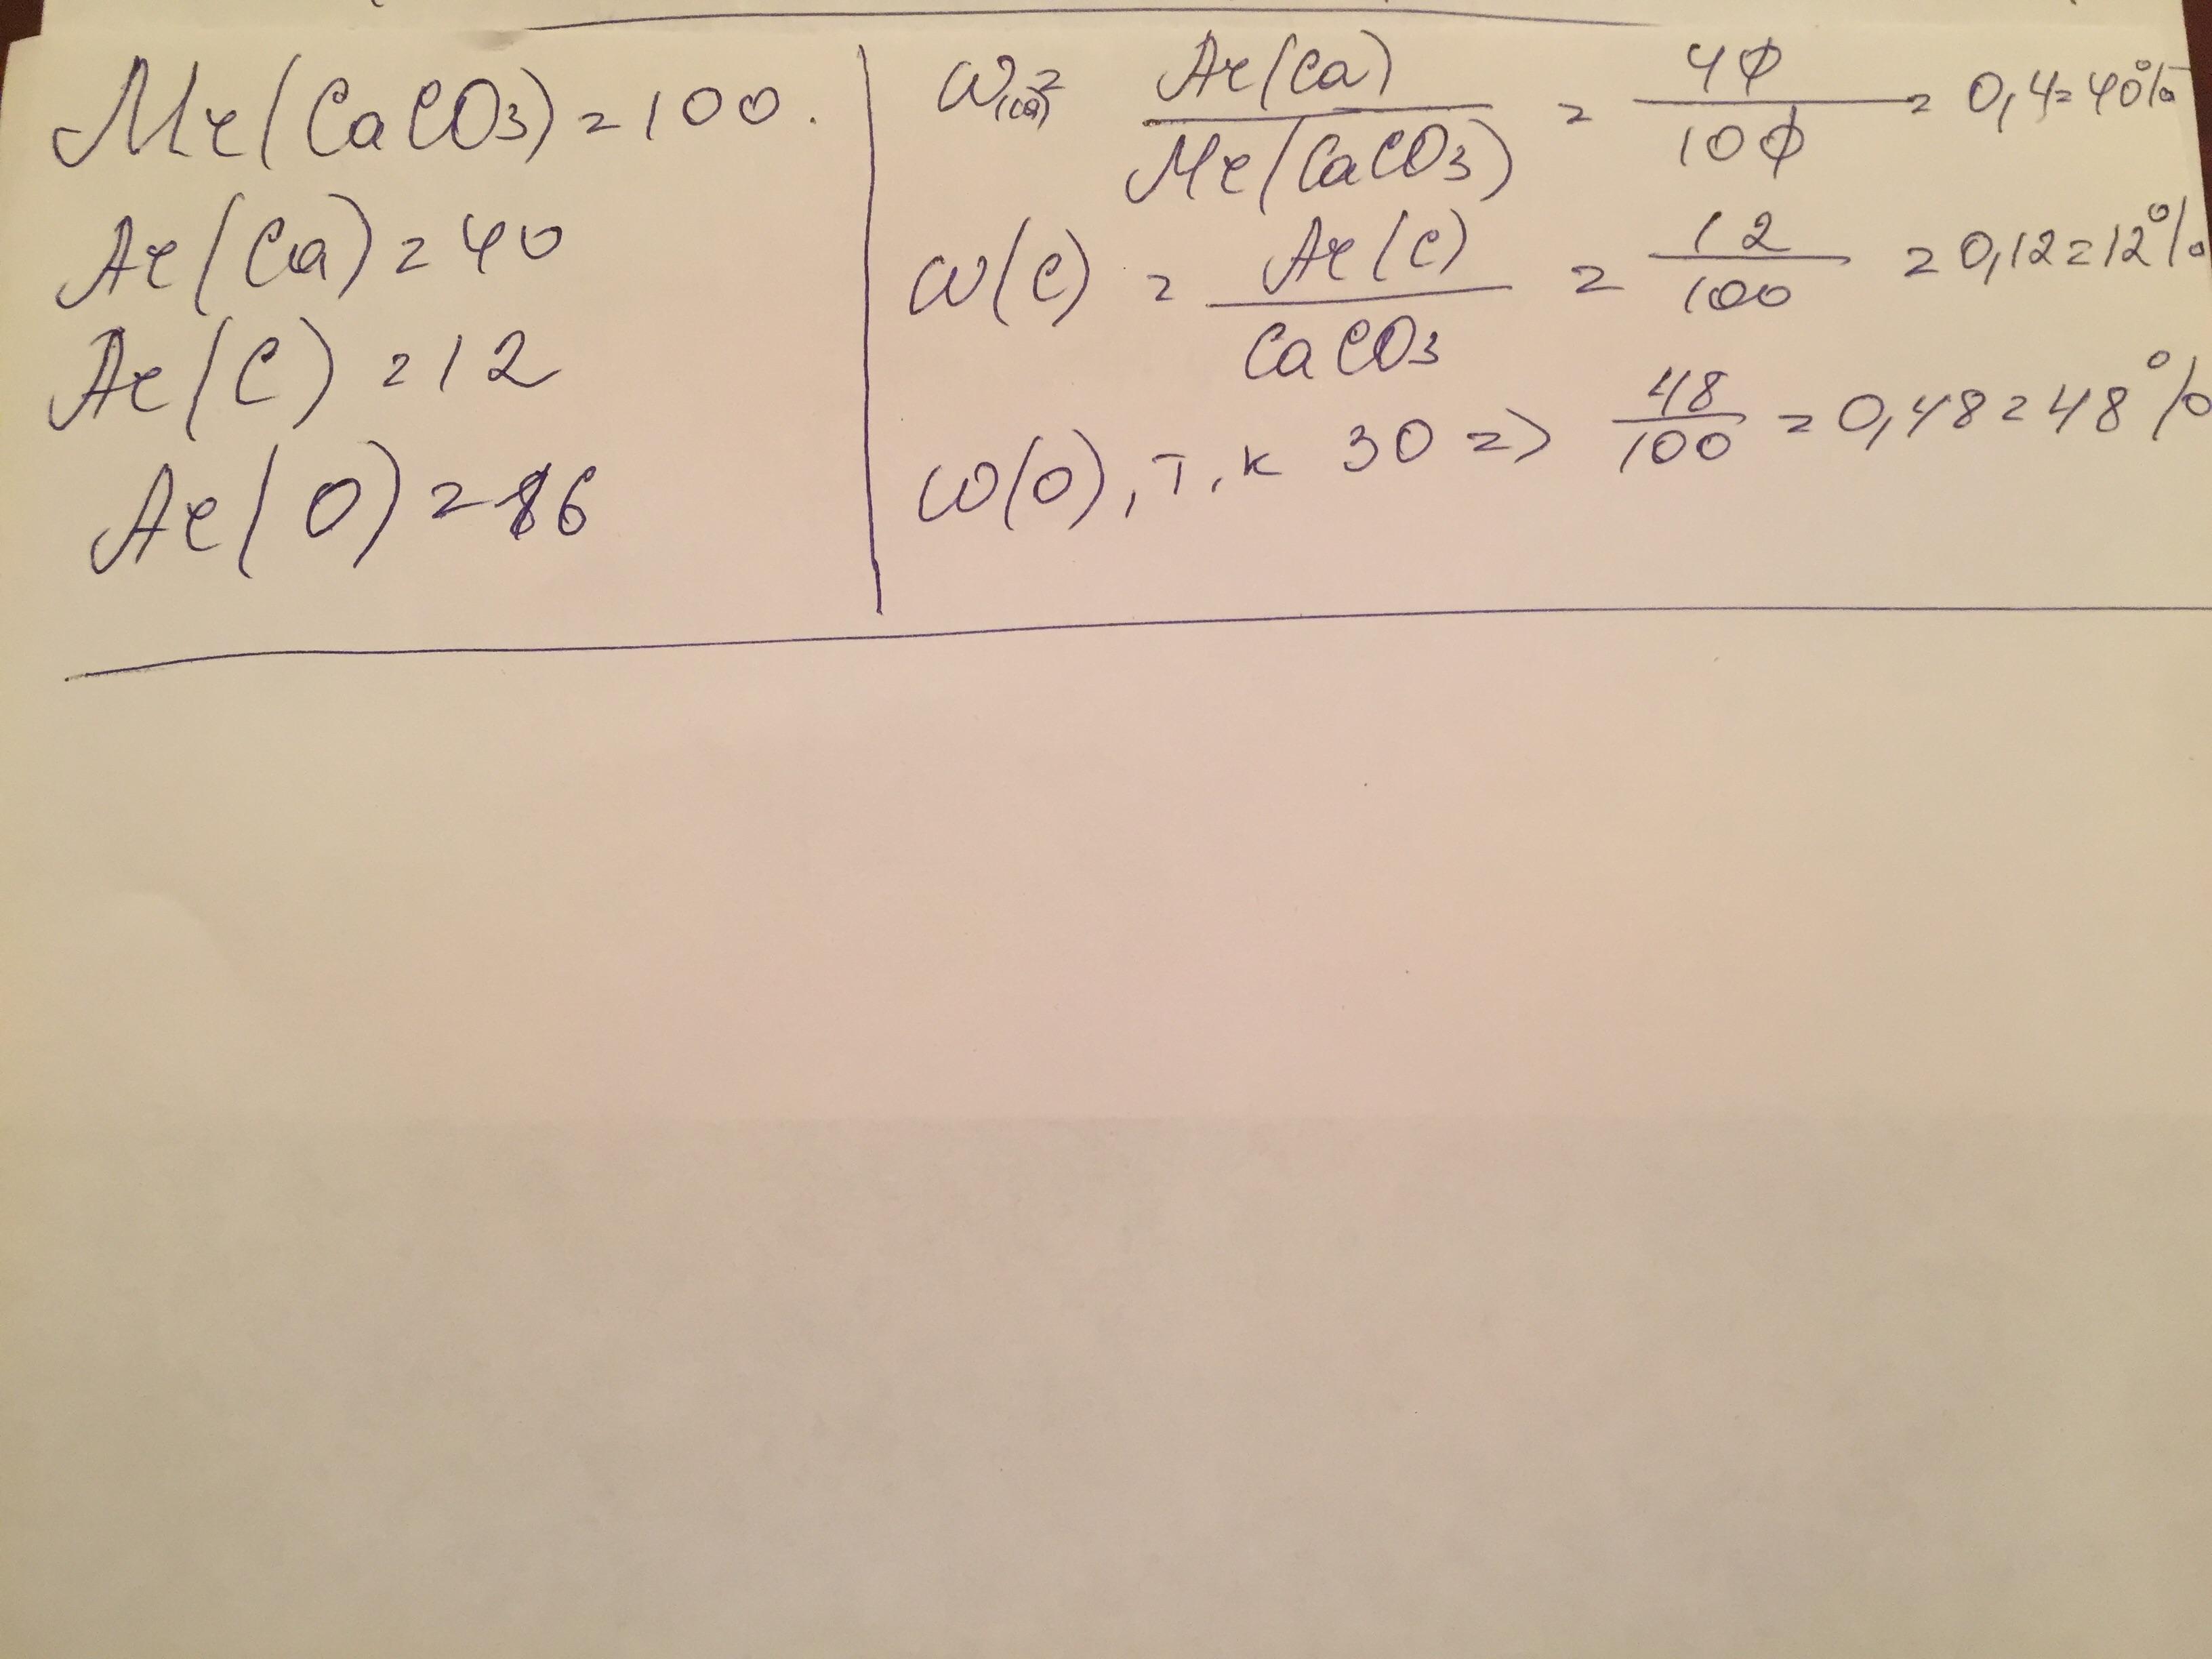 Mr(CaCO3)=100.
Ar(Ca)=40
Ar(C)=12
Ar(O)=16
W(Ca)= Ar(Ca)/Mr(CaCO3) = 40/100 = 0,4=40%
W(C) = Ar(C)/CaCO3 = 12/100 = 0,12=12%
W(O), т.к 3O => 48/100 = 0,48=48%